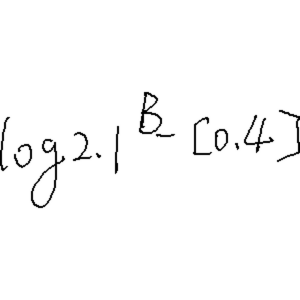 log2.1^B_ [0.4]